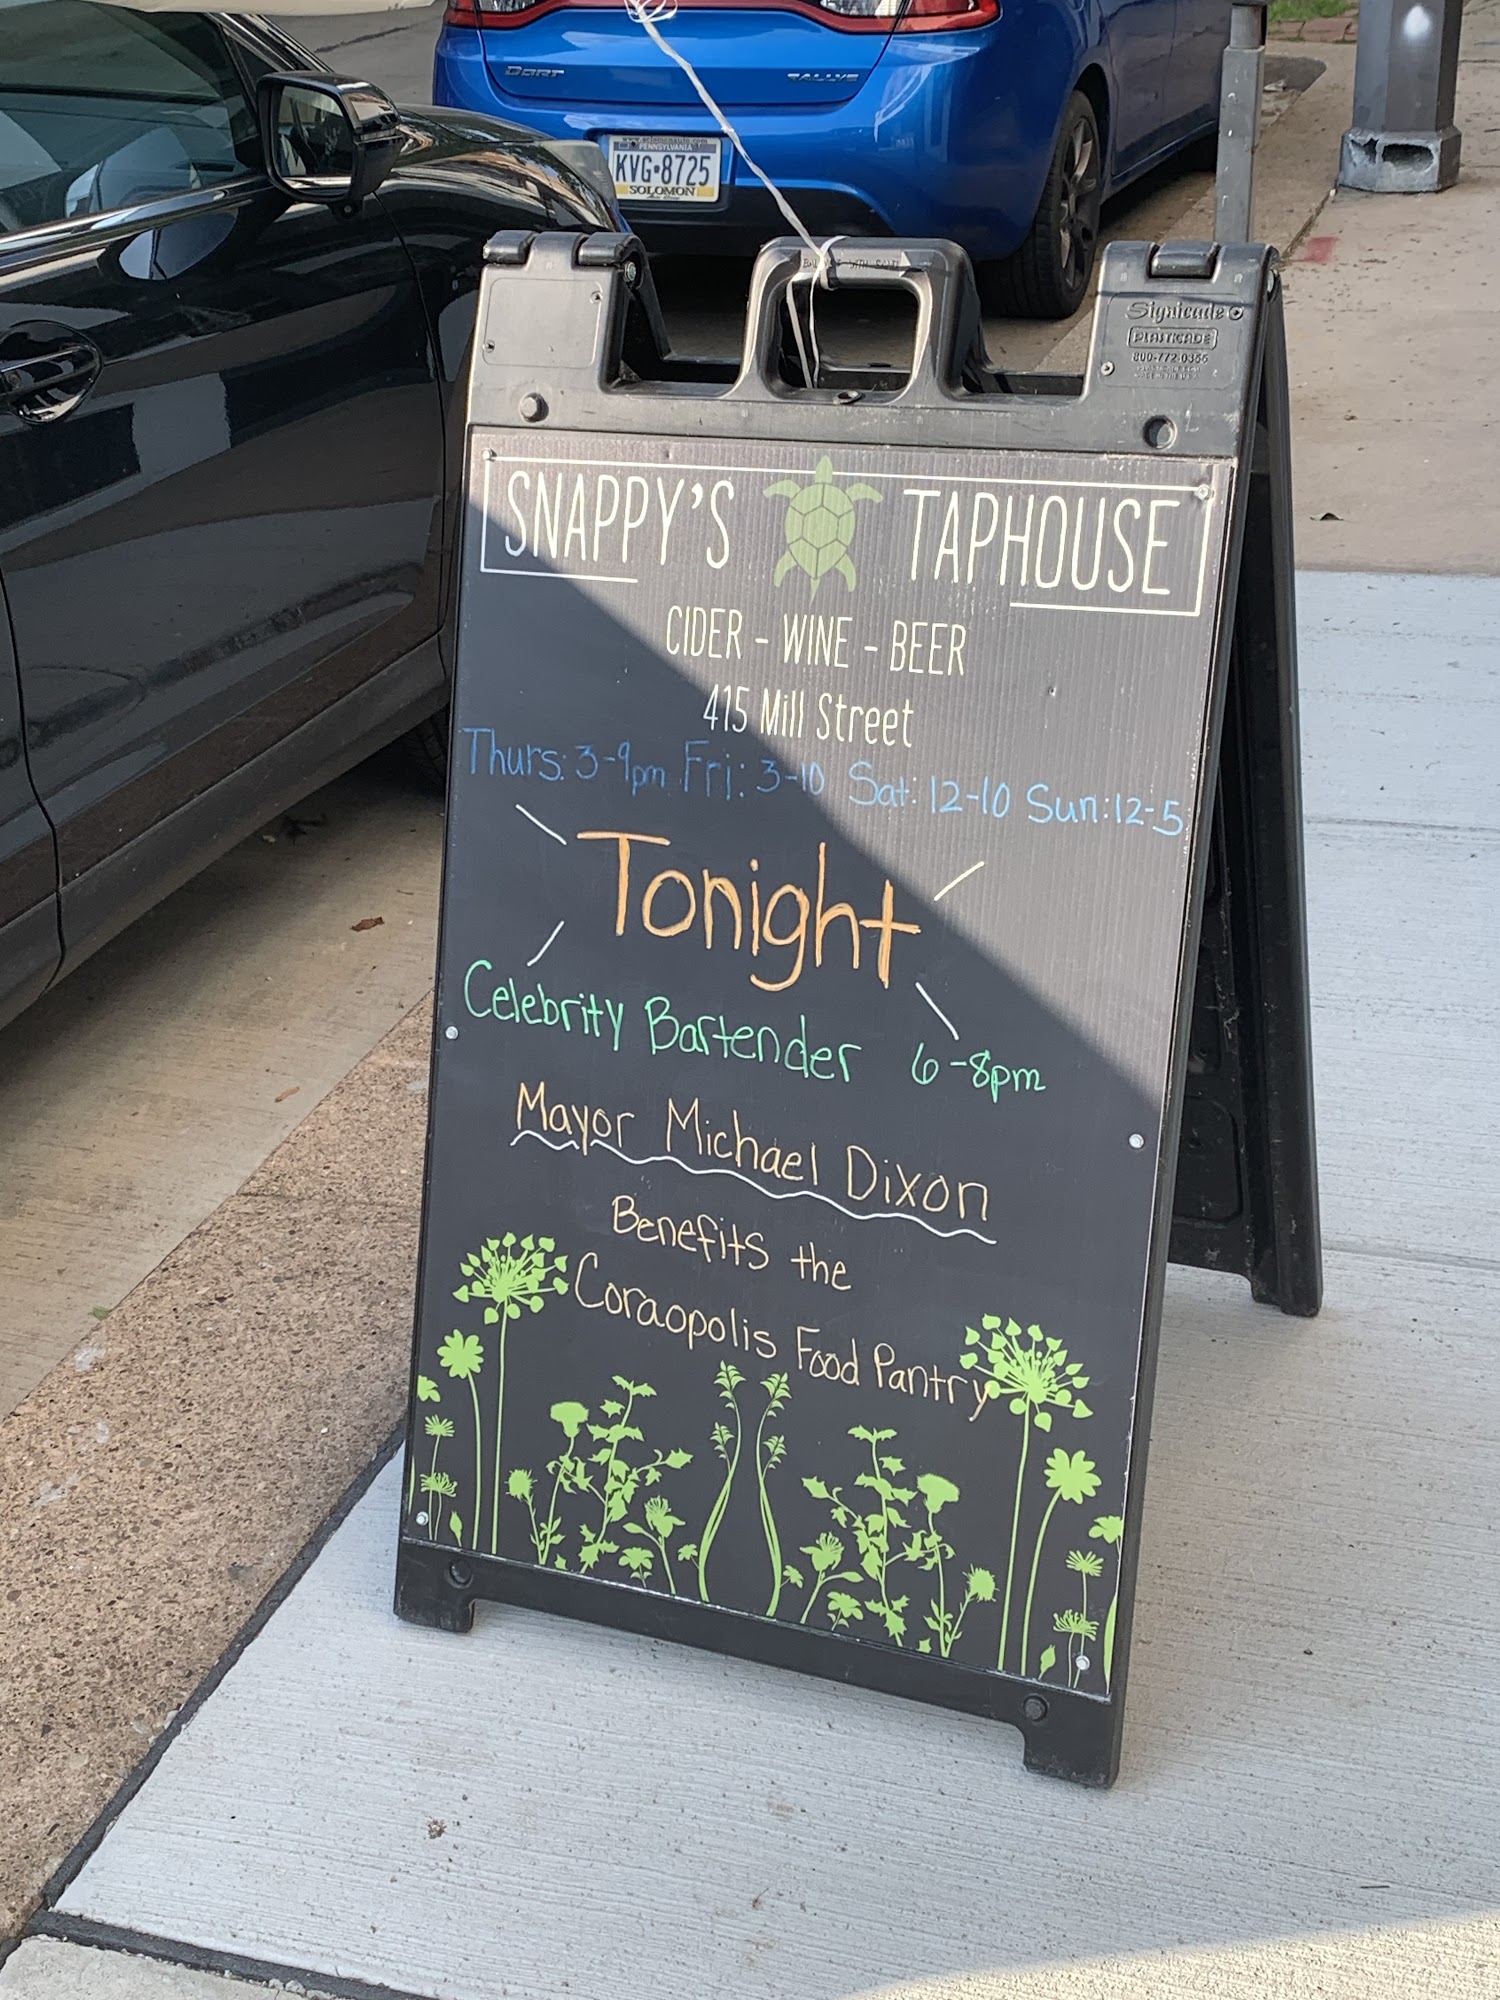 DART RALLYE
PENNSYLVANIA
KVG•8725
SOLOMON
Signicade
PLASTICADE
800-772-0355
SNAPPY'S TAPHOUSE
CIDER - WINE - BEER
415 Mill Street
Thurs: 3-9pm Fri: 3-10 Sat: 12-10 Sun: 12-5
Tonight
Celebrity Bartender 6-8pm
Mayor Michael Dixon
Benefits the
Coraopolis Food Pantry